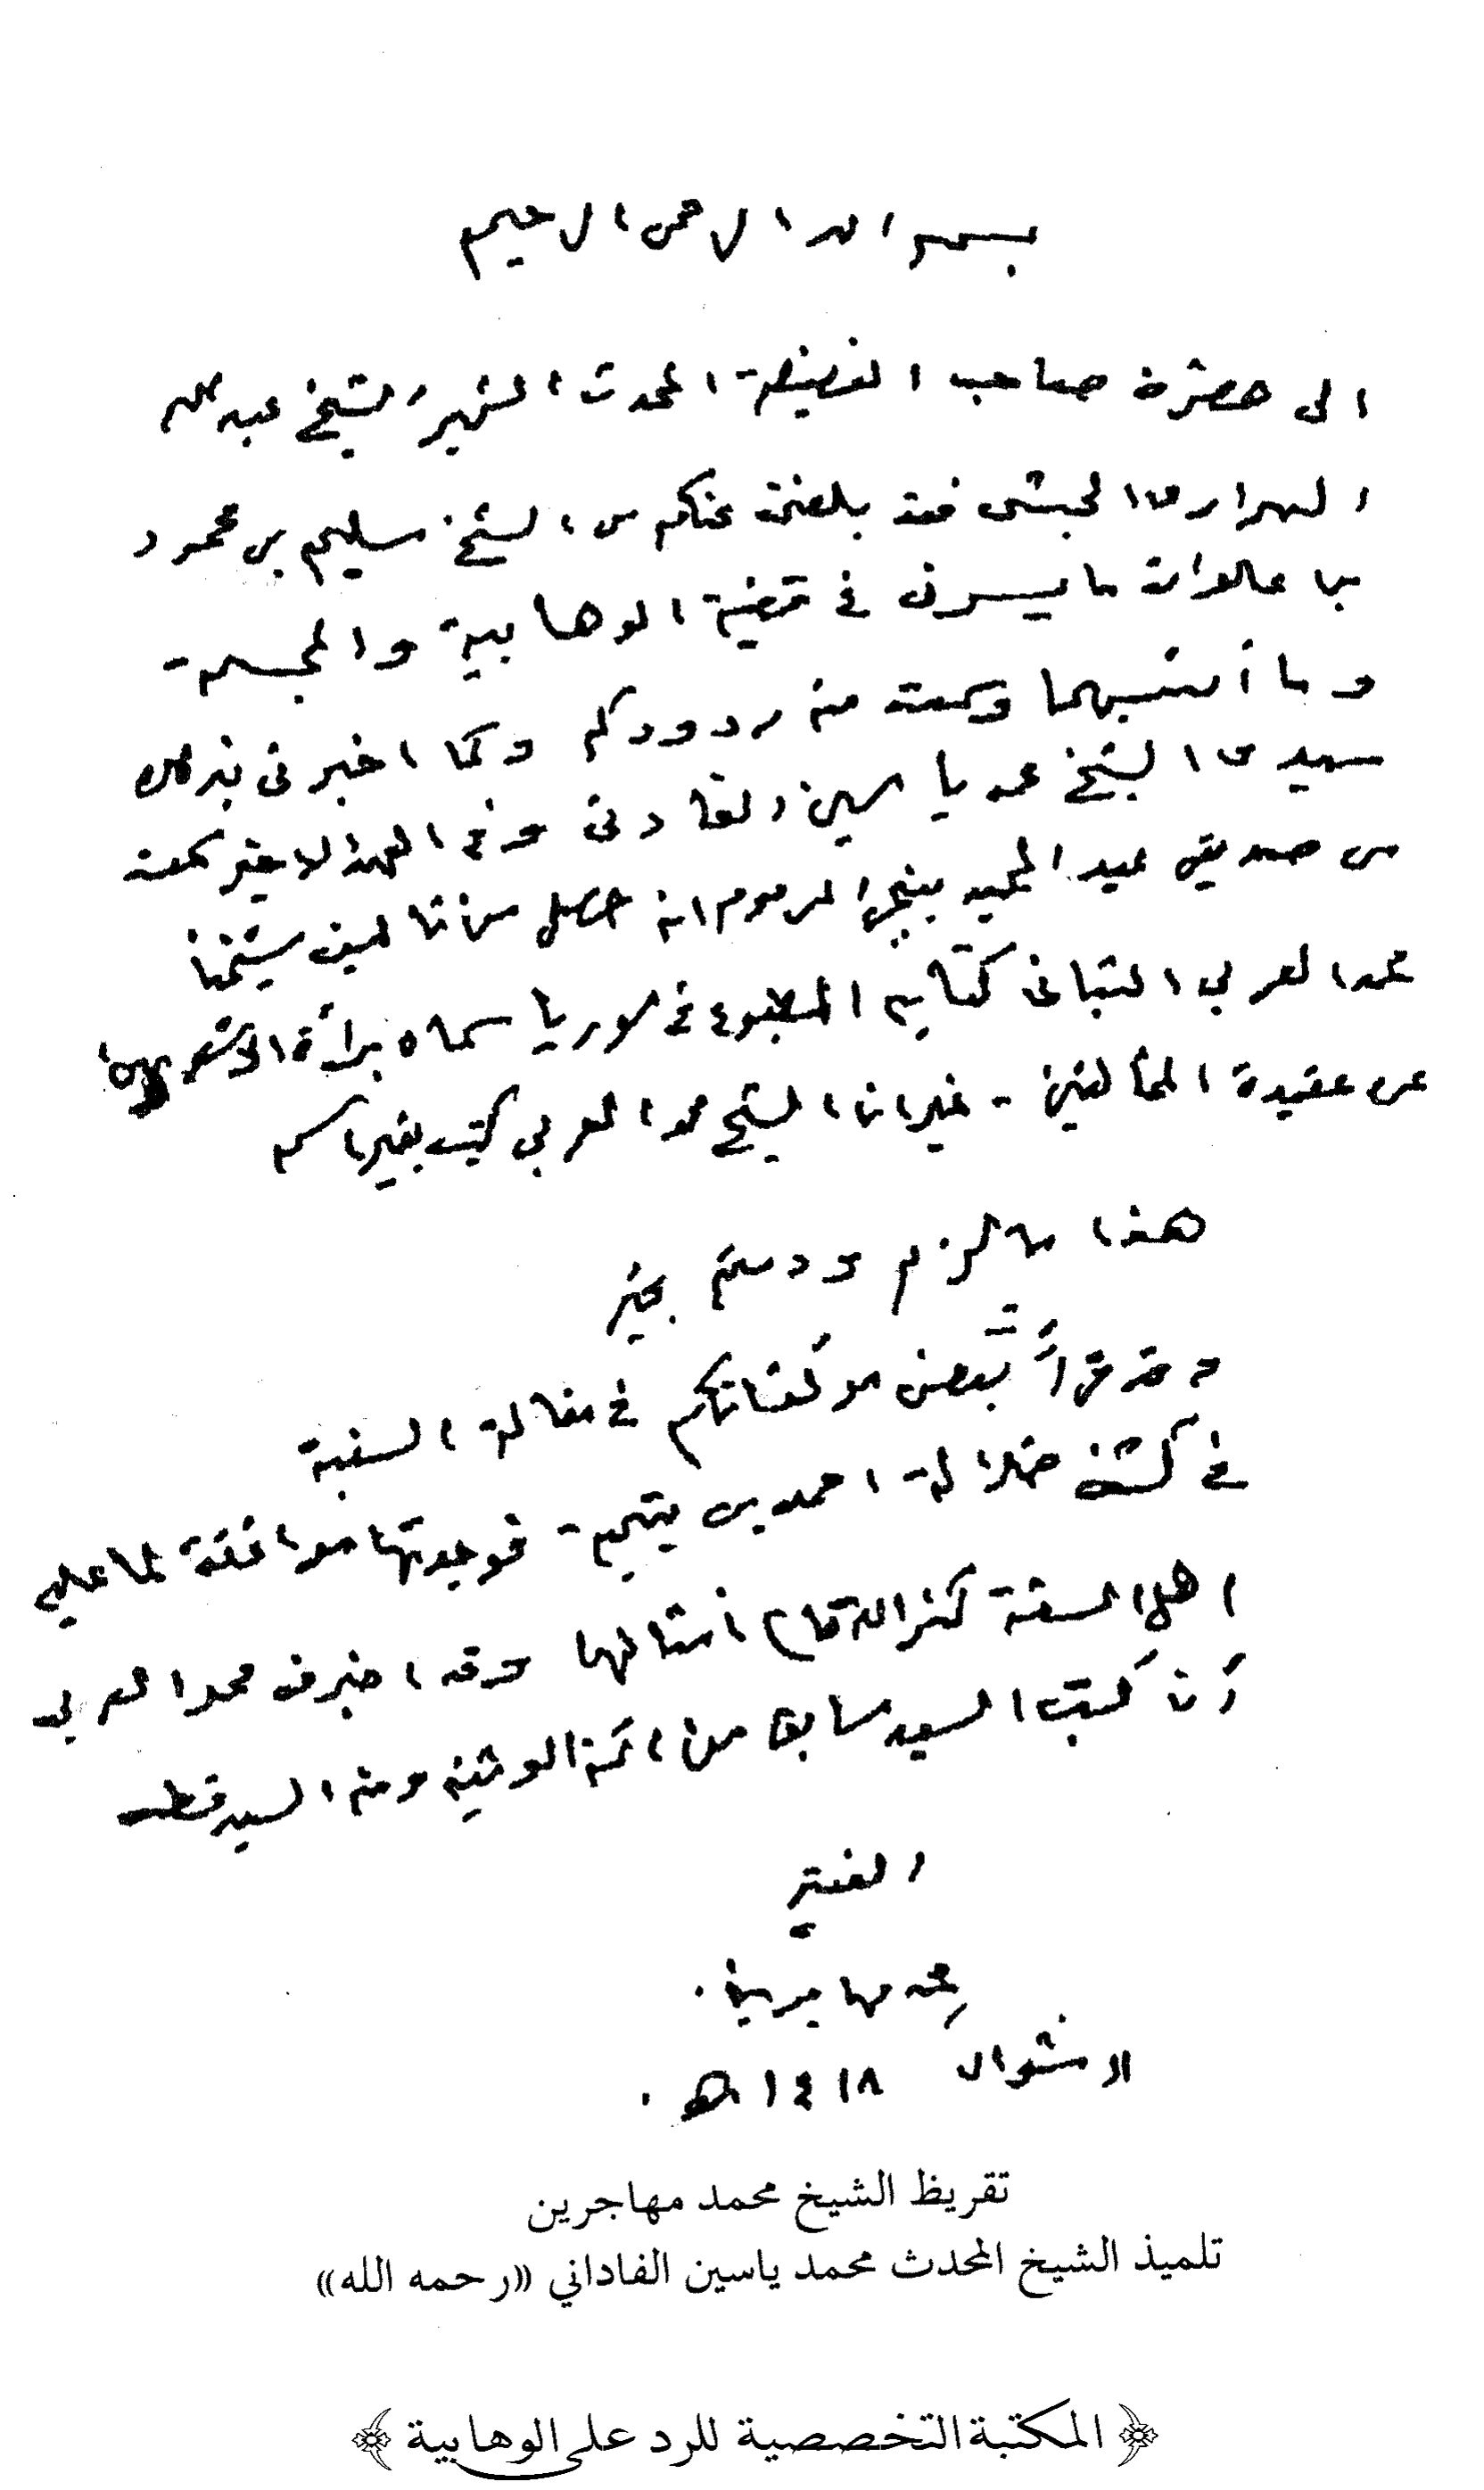 بسم الله الرحمن الرحيم
الى حضرة صاحب الفضيلة المحدث الشهير الشيخ عبدالله
الهرارى الحبشى فقد بلغنى عنكم من الشيخ سليم بن محمود
بما علوان ما يسرنى فى قضية الوهابية والمجسمة
وما أشبهها وسمعت من ردودكم وكما اخبرنى بذلك
سيدى الشيخ محمد ياسين الفادنى وفى العهد الاخير سمعت
من صديقى عبد المجيد المرحوم انه حصل من تأليف شيخنا
محمد العربى التبانى كتابه المطبوع فى سوريا سماه برأة الاشعريين
عن عقيدة المخالفين - غير ان الشيخ محمد العربى كتب بغير اسمه
هذا ما لزم ودمتم بخير
وقد قرأت بعض مؤلفاتكم فى مقالة السنية
فى كشف ضلالة احمد بن تيمية - فوجدتها موافقة لما عليه
اهل السنة كثر الله تعالى امثالها وقد اخبرنى محمد العربى
أن كتب السيد سابق من ائمة الوثنية ومنه السيد قطب
الفقير
محمد مهاجرين.
شوال ١٤١٨ هـ.
تقريظ الشيخ محمد مهاجرين
تلميذ الشيخ المحدث محمد ياسين الفاداني «رحمه الله»
المكتبة التخصصية للرد على الوهابية